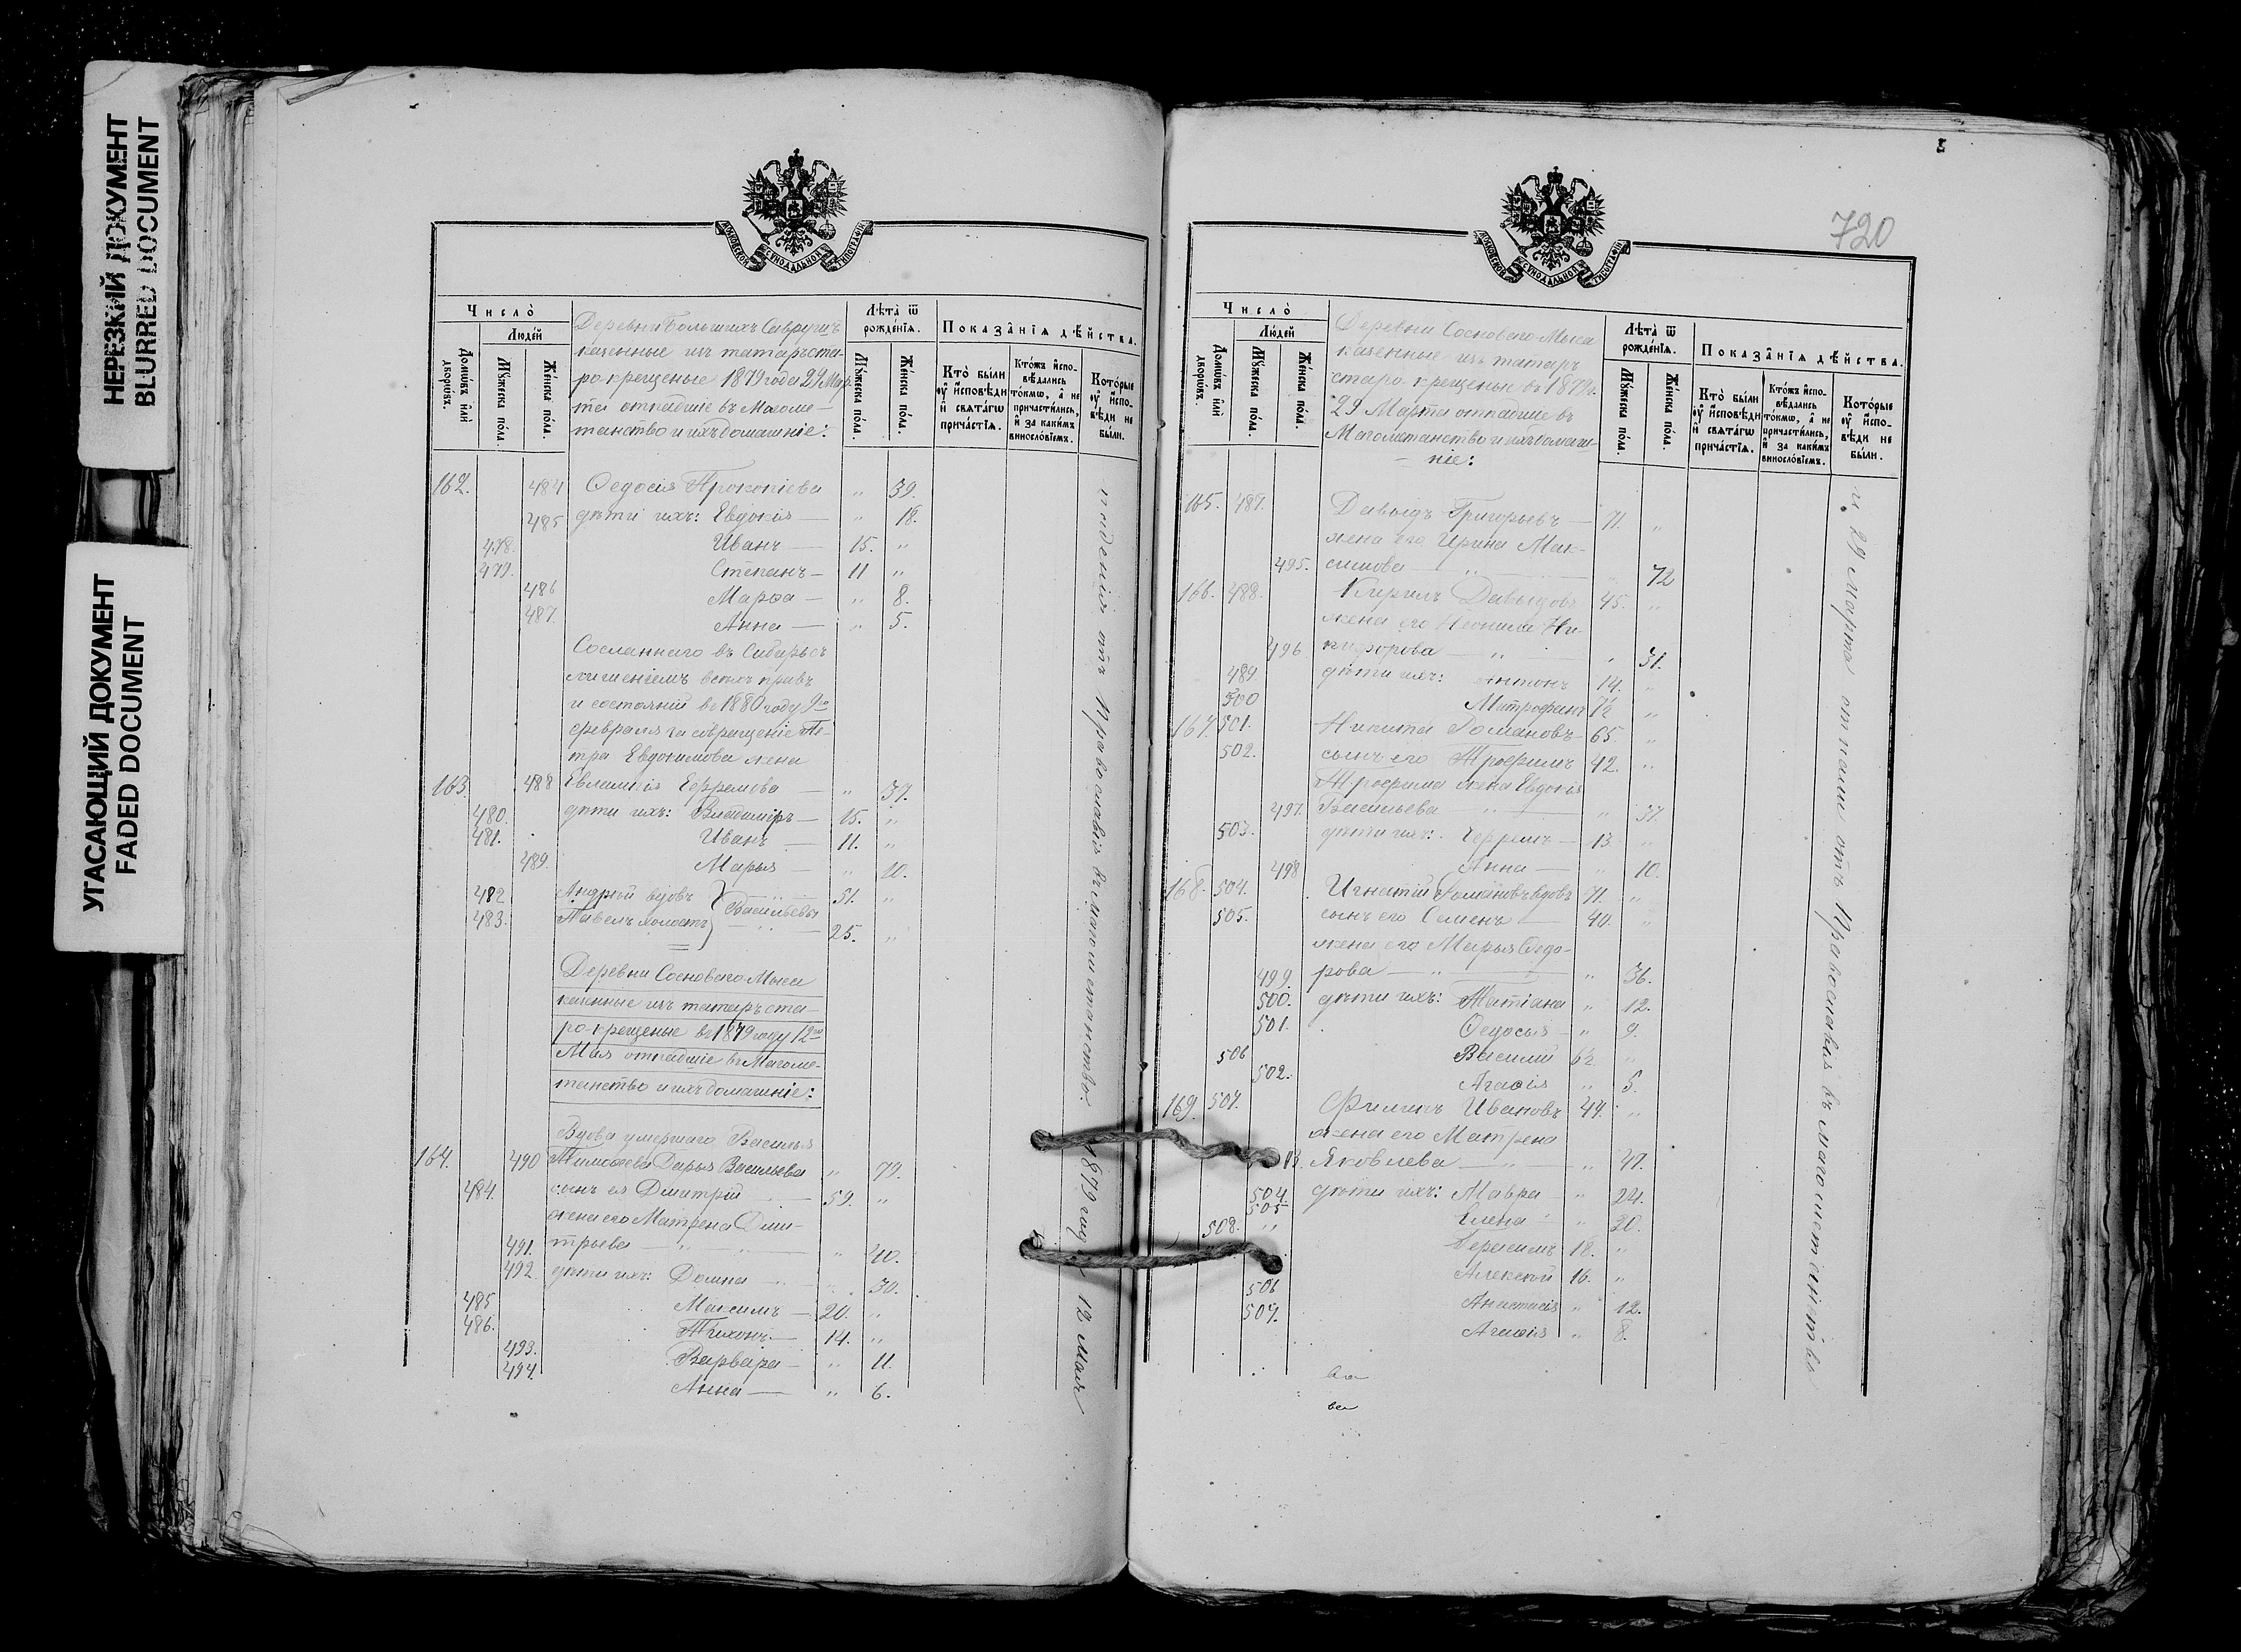 НЕРЕЗКИЙ ДОКУМЕНТ
BLURRED DOCUMENT
УГАСАЮЩИЙ ДОКУМЕНТ
FADED DOCUMENT
МОСКОВСКОЙ СѴНОДАЛЬНОЙ ТИПОГРАФІИ
Число̀
Люде́й
Домѡ́въ и҆лѝ дворѡ́въ.
Мꙋ́жеска по́ла.
Же́нска по́ла.
Деревни Большихъ Савруши
казенные изъ татаръ ста-
ро крещеные 1879 года 29 Мар-
та отпадшіе въ Магоме-
танство и ихъ домашніе:
Лѣ́та ѿ рожде́нїѧ.
Мꙋ́жеска по́ла.
Же́нска по́ла.
Показа̑нїѧ дѣ́йства.
Кто̀ бы́ли ᲂу҆ и҆́сповѣди и҆ свѧта́гѡ прича́стїѧ.
Кто́жъ и҆спо-вѣ́дались то́кмѡ, а҆ не причасти́лись, и҆ за каки́мъ винослѡ́вїемъ.
Кото́рые ᲂу҆ и҆́спо-вѣди не бы́ли.
162. 484 Ѳедосія Прокопіева " 39.
485 дѣти ихъ: Евдокія " 18.
478. Иванъ 15. "
479. Степанъ 11 "
486 Марѳа " 8.
487. Анна " 5.
Сосланнаго въ Сибирь съ
лишеніемъ всѣхъ правъ
и состояній въ 1880 году 9го
февраля за совращеніе Пе-
тра Евдокимова жена
163. 488 Евлампія Ефремова " 37.
480. дѣти ихъ: Владиміръ 15. "
481. Иванъ 11. "
489. Марья " 10.
482 Андрей вдовъ } Васильевы 51. "
483. Павелъ холостъ 25. "
Деревни Сосноваго Мыса
казенные изъ татаръ ста-
ро-крещеные въ 1879 году 12го
Мая отпадшіе въ Магоме-
танство и ихъ домашніе:
Вдова умершаго Василья
164. 490 Тимоѳеева Дарья Васильева " 79.
484. сынъ ея Дмитрій 59. "
жена его Матрена Дми-
491. тріева " 40.
492 дѣти ихъ: Домна " 30.
485 Максимъ 20. "
486. Тихонъ 14. "
493. Варвара " 11.
494. Анна " 6.
паденія отъ Православія въ магометанство. 1879 года 12 мая
720
МОСКОВСКОЙ СѴНОДАЛЬНОЙ ТИПОГРАФІИ
Число̀
Люде́й
Домѡ́въ и҆лѝ дворѡ́въ.
Мꙋ́жеска по́ла.
Же́нска по́ла.
Деревни Сосноваго Мыса
казенные изъ татаръ
старо крещеные въ 1879 г.
29 Марта отпадшіе въ
Магометанство и ихъ домаш-
ніе:
Лѣ́та ѿ рожде́нїѧ.
Мꙋ́жеска по́ла.
Же́нска по́ла.
Показа̑нїѧ дѣ́йства.
Кто̀ бы́ли ᲂу҆ и҆́сповѣди и҆ свѧта́гѡ прича́стїѧ.
Кто́жъ и҆спо-вѣ́дались то́кмѡ, а҆ не причасти́лись, и҆ за каки́мъ винослѡ́вїемъ.
Кото́рые ᲂу҆ и҆́спо-вѣди не бы́ли.
165. 487. Давыдъ Григорьевъ 71. "
жена его Ирина Мак-
495. симова " 72
166. 488. Кирилъ Давыдовъ 45. "
жена его Неонила Ни-
496. кифорова " 31.
489 дѣти ихъ: Антонъ 14. "
500 Митрофанъ 1/2 "
167. 501. Никита Романовъ 65. "
502. сынъ его Трофимъ 42. "
Трофима жена Евдокія
497. Васильева " 37.
503. дѣти ихъ: Ефремъ 13. "
498 Анна " 10.
168. 504. Игнатій Романовъ вдовъ 71. "
505. сынъ его Семенъ 40. "
жена его Марья Ѳедо-
499. рова " 36.
500. дѣти ихъ: Татіана " 12.
501. Ѳедосья " 9.
506 Василій "
502. Агаѳія " 5.
169. 507. Филипъ Ивановъ 44. "
жена его Матрена
Яковлева " 47.
504. дѣти ихъ: Мавра " 24.
505 Елена " 20.
508. " Герасимъ 18. "
Алексѣй 16. "
506 Анастасія " 12.
507. Агаѳія " 8.
ва
ва
и 29 Марта отпали отъ Православія въ магометанство